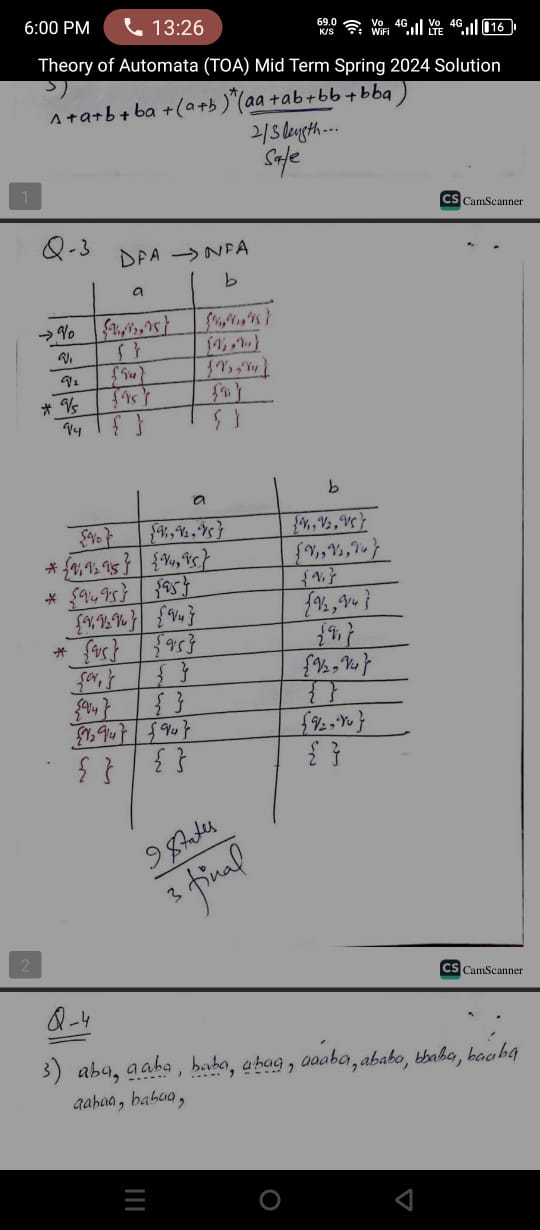 6:00 PM 13:26 69.0 K/S Vo WiFi 4G Vo LTE 4G 16
Theory of Automata (TOA) Mid Term Spring 2024 Solution
3)
^+a+b+ba+(a+b)*(aa+ab+bb+bba)
2/3 length...
Safe
1
CS CamScanner
Q-3 DFA → NFA
a b
→ q0 {q1,q2,q5} {q1,q2,q5}
q1 { } {q2,q4}
q2 {q4} {q2,q4}
* q5 {q5} {q1}
q4 { } { }
a b
{q0} {q1,q2,q5} {q1,q2,q5}
* {q1q2q5} {q4,q5} {q1,q2,q4}
* {q4q5} {q5} {q1}
{q1q2q4} {q4} {q2,q4}
* {q5} {q5} {q1}
{q1} { } {q2,q4}
{q4} { } { }
{q2q4} {q4} {q2,q4}
{ } { } { }
9 States
3 final
2
CS CamScanner
Q-4
3) aba, aaba, baba, abaa, aaaba, ababa, bbaba, baaba
aabaa, babaa,